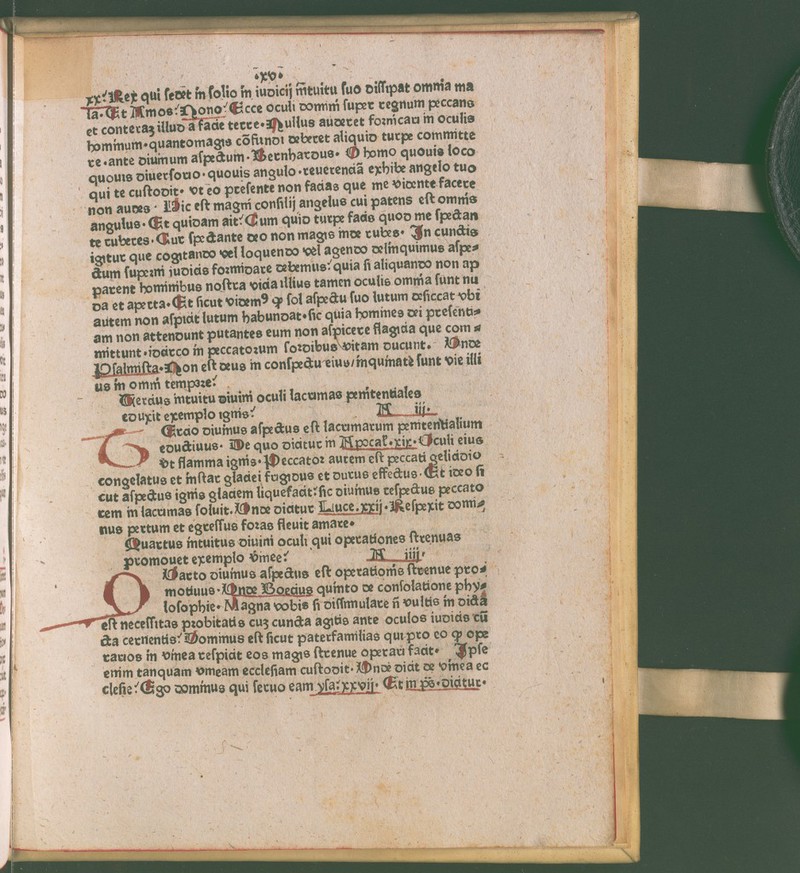 ·xv·
xx:' Rex qui sedet in solio in iudicij intuitu suo dissipat omnia ma
la. Et Amos:' Nono:' Ecce oculi domini super regnum peccans
et conteraz illud a facie terre. Nullus auderet fornicari in oculis
hominum. quantomagis cōfundi deberet aliquid turpe committe
re. ante diuinum aspectum. Bernhardus. O homo quouis loco
quouis diuersorio. quouis angulo. reuerenciā exhibe angelo tuo
qui te custodit. vt eo presente non facias que me vidente facere
non audes. Hic est magni consilij angelus cui patens est omnis
angulus. Et quidam ait:' Cum quid turpe facis quod me spectan
te ruberes. Cur spectante deo non magis inde rubes. In cunctis
igitur que cogitando vel loquendo vel agendo delinquimus aspe⸗
ctum superni iudicis formidare debemus:' quia si aliquando non ap
parent hominibus nostra vicia illius tamen oculis omnia sunt nu
da et aperta. Et sicut videmꝰ ꝙ sol aspectu suo lutum desiccat vbi
autem non aspicit lutum habundat. sic quia homines dei presenti⸗
am non attendunt putantes eum non aspicere flagicia que com⸗
mittunt. idcirco in peccatorum sordibus vitam ducunt. Unde
Psalmista. Non est deus in conspectu eius/ inquinate sunt vie illi
us in omni tempore:'
Tercius intuitu diuini oculi lacrimas penitentiales
eduxit exemplo ignis:' A iij.
TErcio diuinus aspectus est lacrimarum penitentialium
eductiuus. De quo dicitur in Apocal. xix. Oculi eius
vt flamma ignis. Peccator autem est peccati gelicidio
congelatus et instar glaciei frigidus et durus effectus. Et ideo si
cut aspectus ignis glaciem liquefacit:' sic diuinus respectus peccato
rem in lacrimas soluit. Unde dicitur Luce. xxij. Respexit domi⸗
nus petrum et egressus foras fleuit amare.
Quartus intuitus diuini oculi qui operationes strenuas
promouet exemplo vinee:' A iiij.
QUarto diuinus aspectus est operationis strenue pro⸗
motiuus. Unde Boecius quinto de consolatione phy⸗
losophie. Magna vobis si dissimulare ñ vultis in dictā
est necessitas probitatis cuz cuncta agitis ante oculos iudicis cū
cta cernentis:' Dominus est sicut paterfamilias qui pro eo ꝙ ope
rarios in vinea respicit eos magis strenue operari facit. Ipse
enim tanquam vineam ecclesiam custodit. Unde dicit de vinea ec
clesie:' Ego dominus qui seruo eam ysa:' xxvij. Et in ps̄. dicitur.